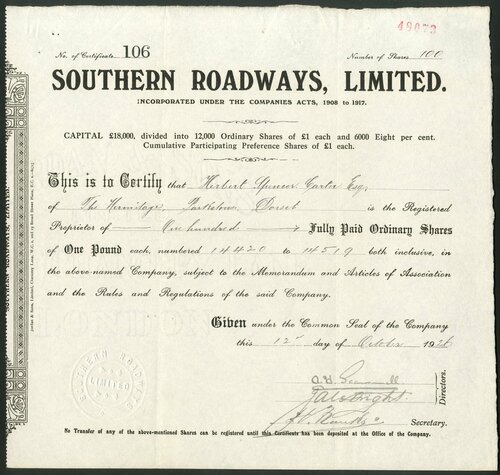 49673
No. of Certificate 106
Number of Shares 100
SOUTHERN ROADWAYS, LIMITED.
INCORPORATED UNDER THE COMPANIES ACTS, 1908 to 1917.
CAPITAL £18,000, divided into 12,000 Ordinary Shares of £1 each and 6000 Eight per cent.
Cumulative Participating Preference Shares of £1 each.
This is to Certify that Herbert Spencer Carter Esq.
of The Hermitage, Parkstone, Dorset is the Registered
Proprietor of One hundred Fully Paid Ordinary Shares
of One Pound each, numbered 14420 to 14519 both inclusive, in
the above-named Company, subject to the Memorandum and Articles of Association
and the Rules and Regulations of the said Company.
Given under the Common Seal of the Company
this 12th day of October 1926
Directors.
Secretary.
SOUTHERN ROADWAYS
LIMITED
No Transfer of any of the above-mentioned Shares can be registered until this Certificate has been deposited at the Office of the Company.